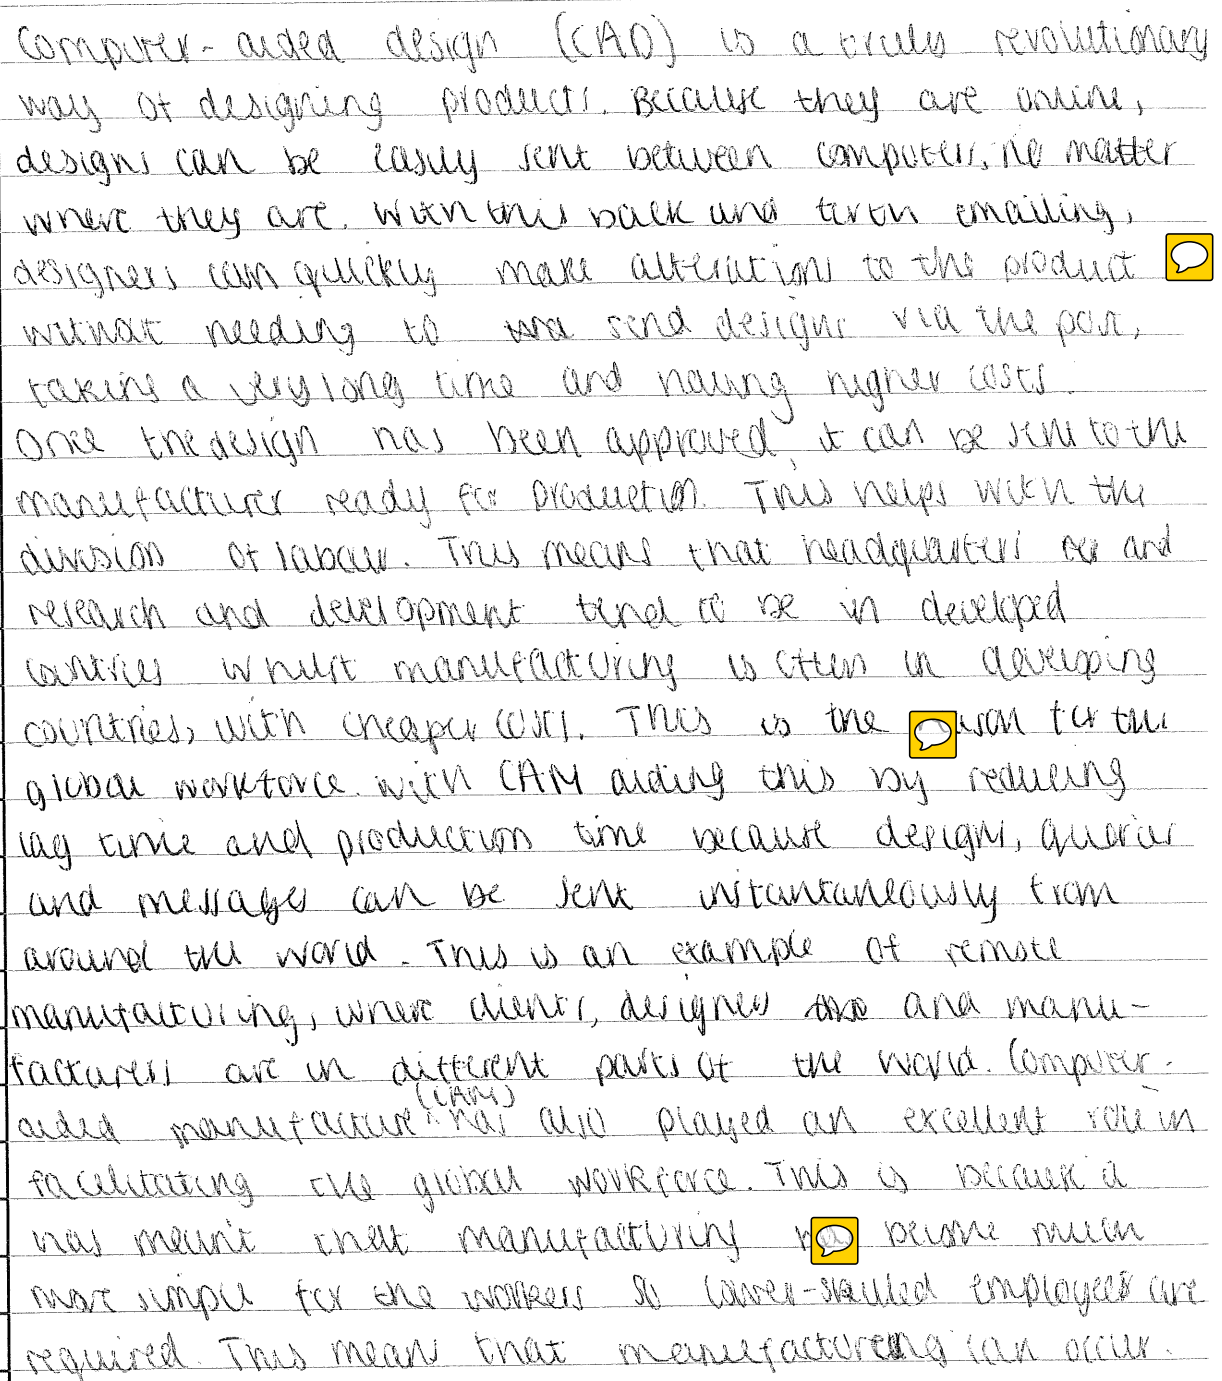 Computer-aided design (CAD) is a truly revolutionary
way of designing products. Because they are online,
designs can be easily sent between computers, no matter
where they are. With this back and forth emailing,
designers can quickly make alterations to the product
without needing to send designs via the post,
taking a very long time and having higher costs.
Once the design has been approved, it can be sent to the
manufacturer ready for production. This helps with the
division of labour. This means that headquarters and
research and development tend to be in developed
countries whilst manufacturing is often in developing
countries, with cheaper costs. This is the for the
global workforce. With CAM aiding this by reducing
lag time and production time because designs, queries
and messages can be sent instantaneously from
around the world. This is an example of remote
manufacturing, where clients, designers and manu-
facturers are in different parts of the world. Computer-
aided manufacture (CAM) has also played an excellent role in
facilitating the global workforce. This is because it
has meant that manufacturing become much
more simple for the workers so lower-skilled employees are
required. This means that manufacturing can occur.